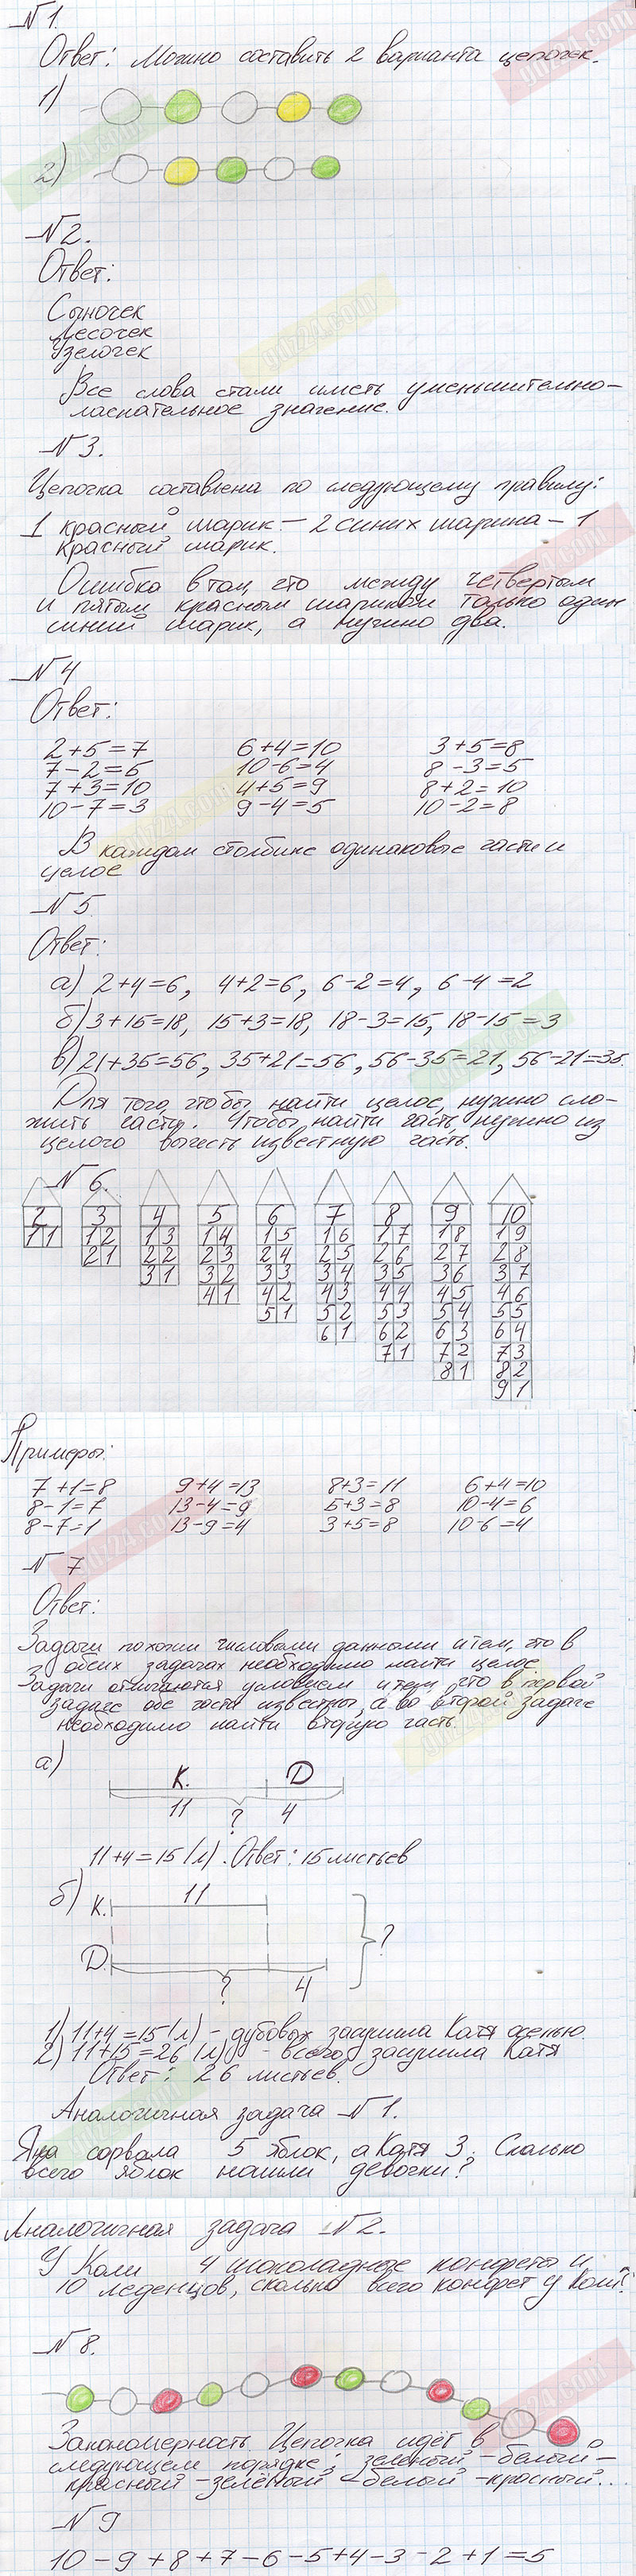 №1.
Ответ: Можно составить 2 варианта цепочек.
1)
2)
№2.
Ответ:
Сыночек
Лесочек
Узелочек
Все слова стали иметь уменьшительно-
ласкательное значение.
№3.
Цепочка составлена по следующему правилу:
1 красный шарик – 2 синих шарика – 1
красный шарик.
Ошибка в том, что между четвертым
и пятым красным шариком только один
синий шарик, а нужно два.
№4
Ответ:
2+5=7 6+4=10 3+5=8
7-2=5 10-6=4 8-3=5
7+3=10 4+5=9 8+2=10
10-7=3 9-4=5 10-2=8
В каждом столбике одинаковые части и
целое
№5
Ответ:
а) 2+4=6, 4+2=6, 6-2=4, 6-4=2
б) 3+15=18, 15+3=18, 18-3=15, 18-15=3
в) 21+35=56, 35+21=56, 56-35=21, 56-21=35.
Для того, чтобы найти целое, нужно сло-
жить части. Чтобы найти часть, нужно из
целого вычесть известную часть.
№6.
2 3 4 5 6 7 8 9 10
1 1 1 2 1 3 1 4 1 5 1 6 1 7 1 8 1 9
2 1 2 2 2 3 2 4 2 5 2 6 2 7 2 8
3 1 3 2 3 3 3 4 3 5 3 6 3 7
4 1 4 2 4 3 4 4 4 5 4 6
5 1 5 2 5 3 5 4 5 5
6 1 6 2 6 3 6 4
7 1 7 2 7 3
8 1 8 2
9 1
Примеры:
7+1=8 9+4=13 8+3=11 6+4=10
8-1=7 13-4=9 5+3=8 10-4=6
8-7=1 13-9=4 3+5=8 10-6=4
№7
Ответ:
Задачи похожи числовыми данными и тем, что в
обеих задачах необходимо найти целое
Задачи отличаются условием и тем, что в первой
задаче обе части известны, а во второй задаче
необходимо найти вторую часть.
а)
К. D
11 ? 4
11+4=15 (л). Ответ: 15 листьев
б) К. 11
?
D.
? 4
1) 11+4=15 (л) - дубовых засушила Катя осенью.
2) 11+15=26 (л) - всего засушила Катя
Ответ: 26 листьев.
Аналогичная задача №1.
Яна сорвала 5 яблок, а Катя 3. Сколько
всего яблок нашли девочки?
Аналогичная задача №2.
У Коли 4 шоколадные конфеты и
10 леденцов, сколько всего конфет у Коли?
№8.
Закономерность. Цепочка идёт в
следующем порядке: зеленый - белый -
красный - зелёный - белый - красный...
№9
10-9+8+7-6-5+4-3-2+1=5